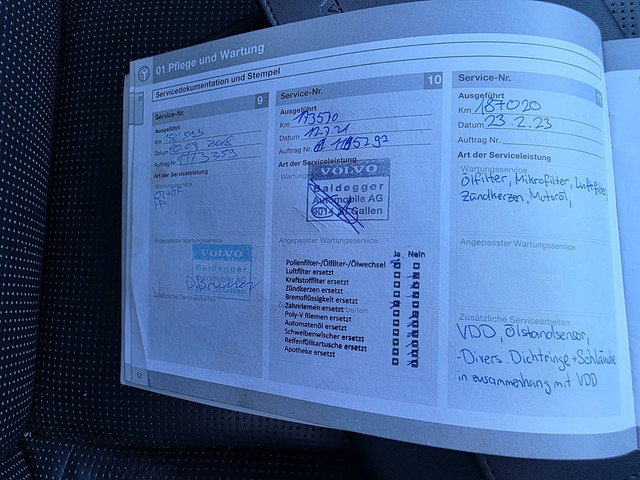 01 Pflege und Wartung
Servicedokumentation und Stempel
Service-Nr. 9
Ausgeführt
Km
Datum
Auftrag Nr. 1173359
Art der Serviceleistung
Wartungsservice
Angepasster Wartungsservice
VOLVO
Baldegger
Automobile AG
Zusätzliche Servicearbeiten
12
Service-Nr. 10
Ausgeführt
Km 173570
Datum 12.7.21
Auftrag Nr.
Art der Serviceleistung
VOLVO
Baldegger
Automobile AG
9014 St.Gallen
Angepasster Wartungsservice
Ja Nein
Pollenfilter-/Ölfilter-/Ölwechsel
Luftfilter ersetzt
Kraftstofffilter ersetzt
Zündkerzen ersetzt
Bremsflüssigkeit ersetzt
Zahnriemen ersetzt
Poly-V Riemen ersetzt
Automatenöl ersetzt
Scheibenwischer ersetzt
Reifenfüllkartusche ersetzt
Apotheke ersetzt
Service-Nr.
Ausgeführt
Km 187020
Datum 23.2.23
Auftrag Nr.
Art der Serviceleistung
Wartungsservice
Ölfilter, Mikrofilter, Luftfilter,
Zündkerzen, Motoröl,
Angepasster Wartungsservice
Zusätzliche Servicearbeiten
VDD, Ölstandsensor,
-Divers Dichtringe + Schläuche
in zusammenhang mit VDD